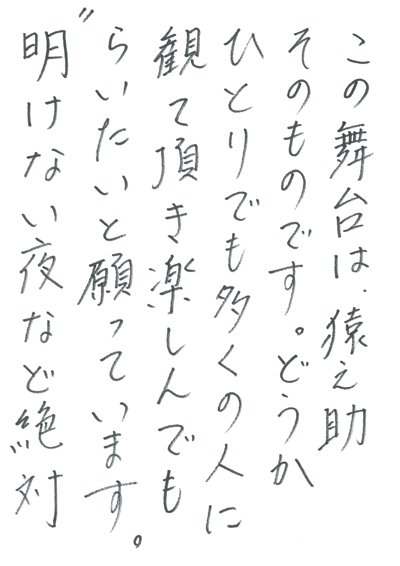 この舞台は、猿之助
そのものです。どうか
ひとりでも多くの人に
観て頂き楽しんでも
らいたいと願っています。
〝明けない夜など絶対